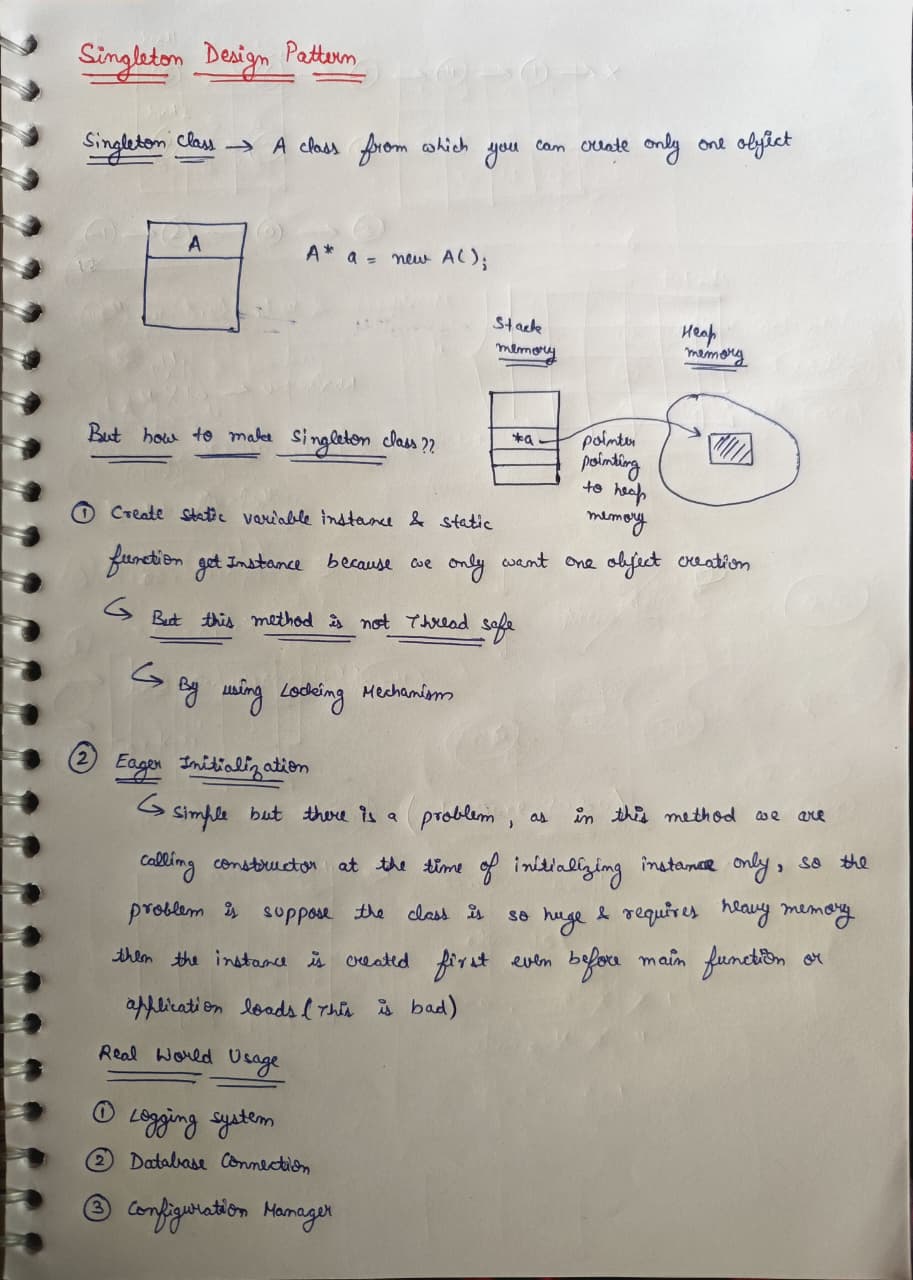 Singleton Design Pattern
Singleton Class → A class from which you can create only one object
A
A* a = new A();
Stack
memory
Heap
memory
*a
pointer
pointing
to heap
memory
But how to make Singleton class??
① Create static variable instance & static
function getInstance because we only want one object creation
↳ But this method is not Thread safe
↳ By using Locking Mechanism
② Eager Initialization
↳ Simple but there is a problem, as in this method we are
calling constructor at the time of initializing instance only, so the
problem is suppose the class is so huge & requires heavy memory
then the instance is created first even before main function or
application loads (This is bad)
Real World Usage
① Logging system
② Database Connection
③ Configuration Manager